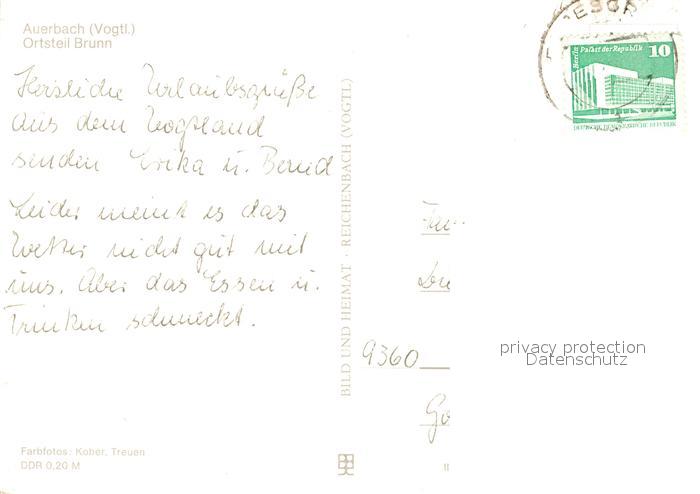 Auerbach (Vogtl.)
Ortsteil Brunn
Herzliche Urlaubsgrüße
aus dem Vogtland
senden Erika u. Bernd
Leider meint es das
Wetter nicht gut mit
uns. Aber das Essen u.
Trinken schmeckt.
Farbfotos: Kober, Treuen
DDR 0,20 M
BILD UND HEIMAT · REICHENBACH (VOGTL)
Berlin Palast der Republik
10
DEUTSCHE DEMOKRATISCHE REPUBLIK
Fam
9360
privacy protection
Datenschutz